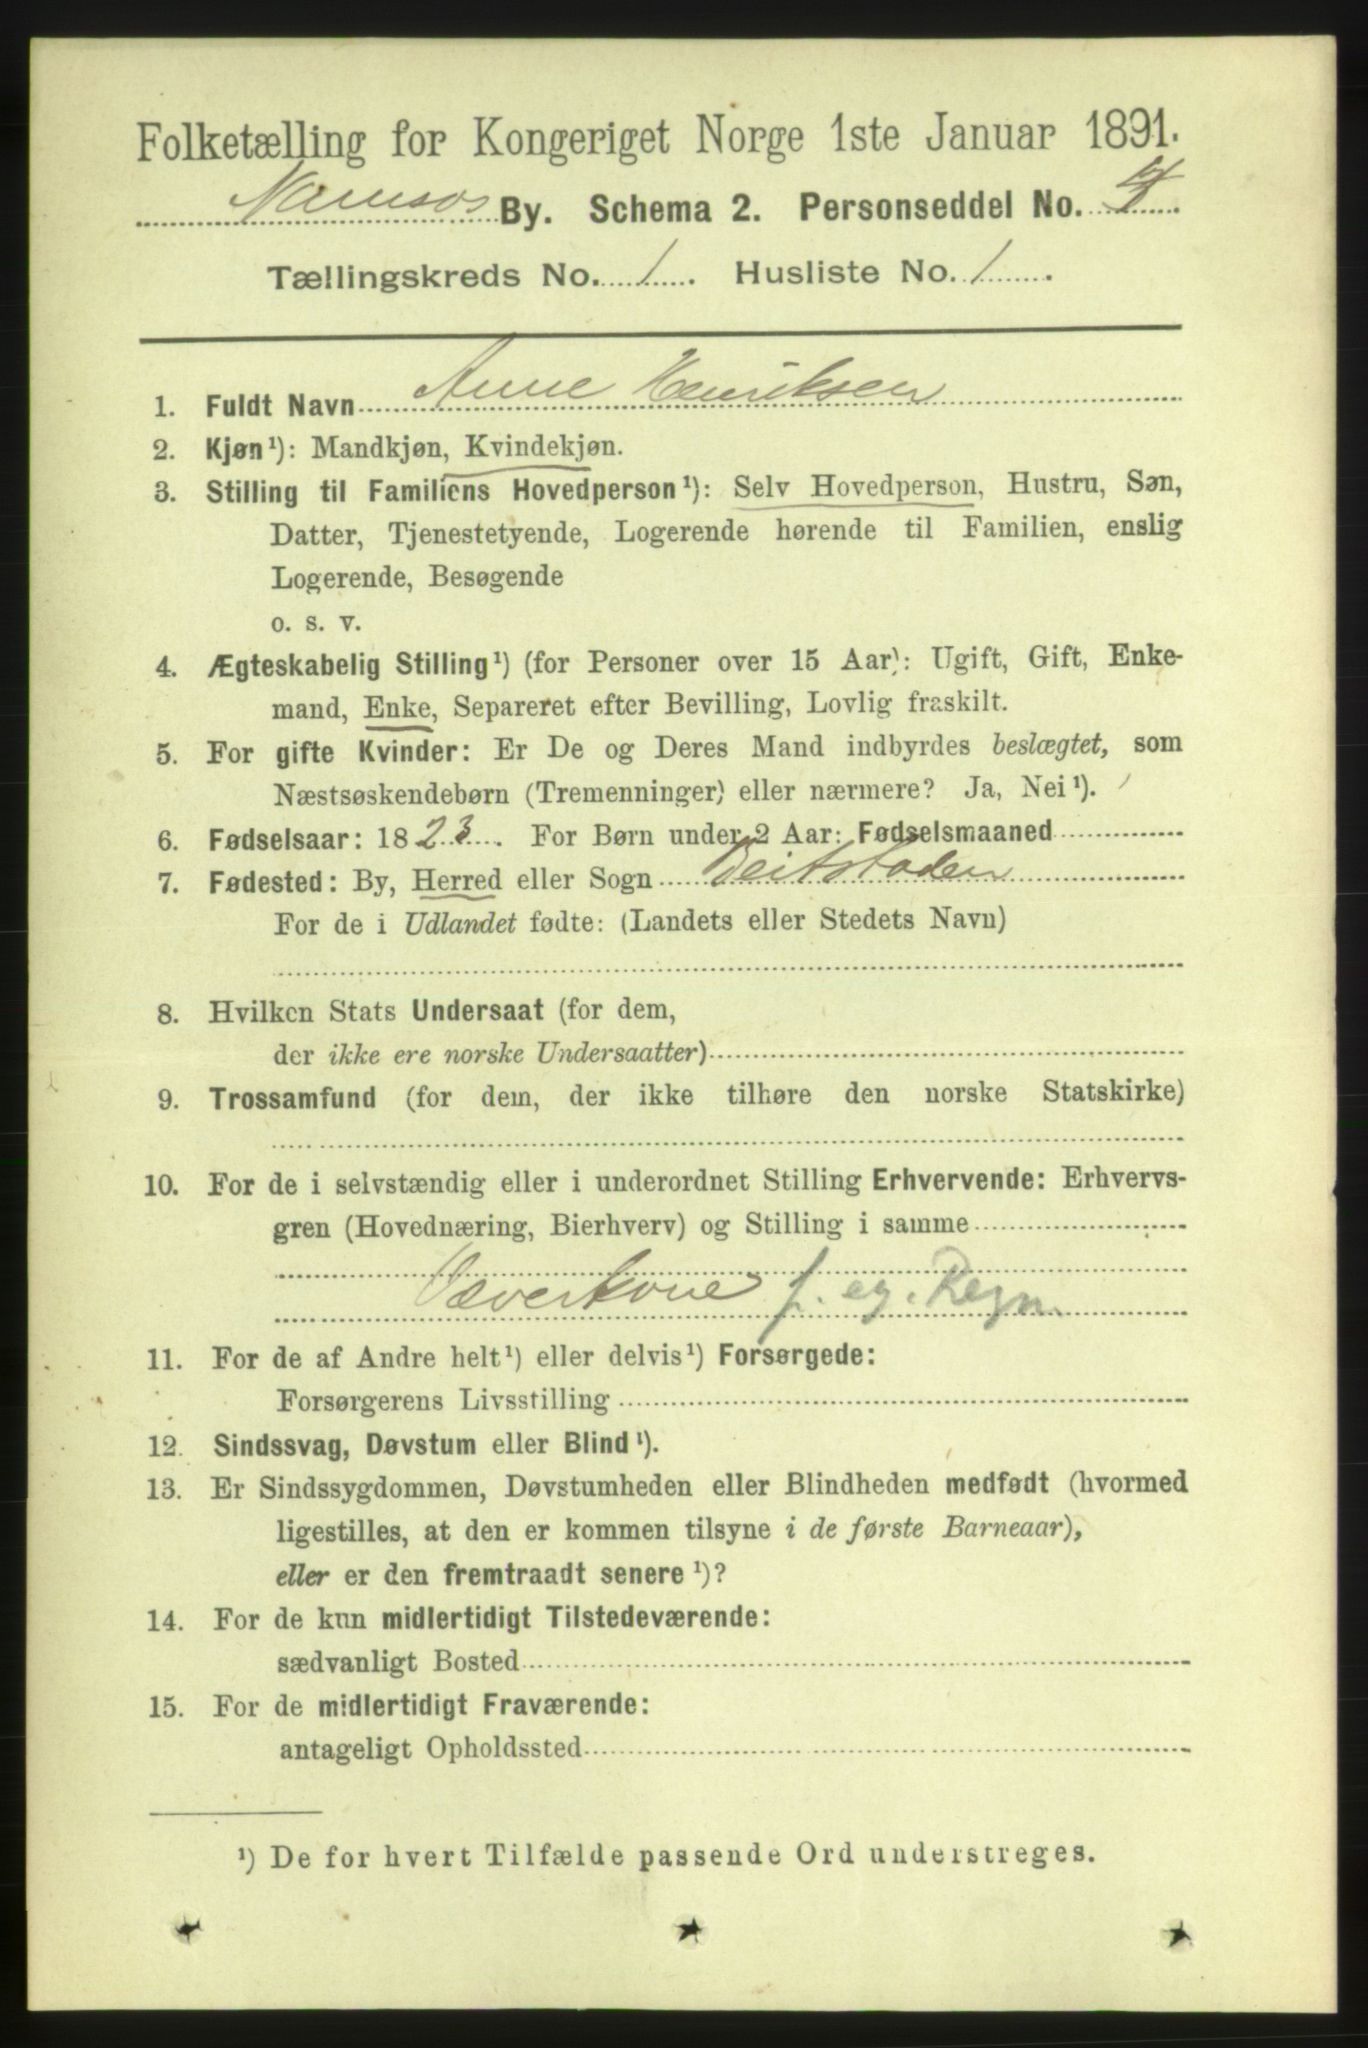 Folketælling for Kongeriget Norge 1ste Januar 1891.
Namsos By. Schema 2. Personseddel No. 4
Tællingskreds No. 1. Husliste No. 1.
1. Fuldt Navn Anne Henriksen
2. Kjøn¹): Mandkjøn, Kvindekjøn.
3. Stilling til Familiens Hovedperson¹): Selv Hovedperson, Hustru, Søn,
Datter, Tjenestetyende, Logerende hørende til Familien, enslig
Logerende, Besøgende
o. s. v.
4. Ægteskabelig Stilling¹) (for Personer over 15 Aar): Ugift, Gift, Enke-
mand, Enke, Separeret efter Bevilling, Lovlig fraskilt.
5. For gifte Kvinder: Er De og Deres Mand indbyrdes beslægtet, som
Næstsøskendebørn (Tremenninger) eller nærmere? Ja, Nei¹).
6. Fødselsaar: 1823. For Børn under 2 Aar: Fødselsmaaned
7. Fødested: By, Herred eller Sogn Beitstaden
For de i Udlandet fødte: (Landets eller Stedets Navn)
8. Hvilken Stats Undersaat (for dem,
der ikke ere norske Undersaatter)
9. Trossamfund (for dem, der ikke tilhøre den norske Statskirke)
10. For de i selvstændig eller i underordnet Stilling Erhvervende: Erhvervs-
gren (Hovednæring, Bierhverv) og Stilling i samme
Væverkone f. eg. Regn.
11. For de af Andre helt¹) eller delvis¹) Forsørgede:
Forsørgerens Livsstilling
12. Sindssvag, Døvstum eller Blind¹).
13. Er Sindssygdommen, Døvstumheden eller Blindheden medfødt (hvormed
ligestilles, at den er kommen tilsyne i de første Barneaar),
eller er den fremtraadt senere¹)?
14. For de kun midlertidigt Tilstedeværende:
sædvanligt Bosted
15. For de midlertidigt Fraværende:
antageligt Opholdssted
¹) De for hvert Tilfælde passende Ord understreges.